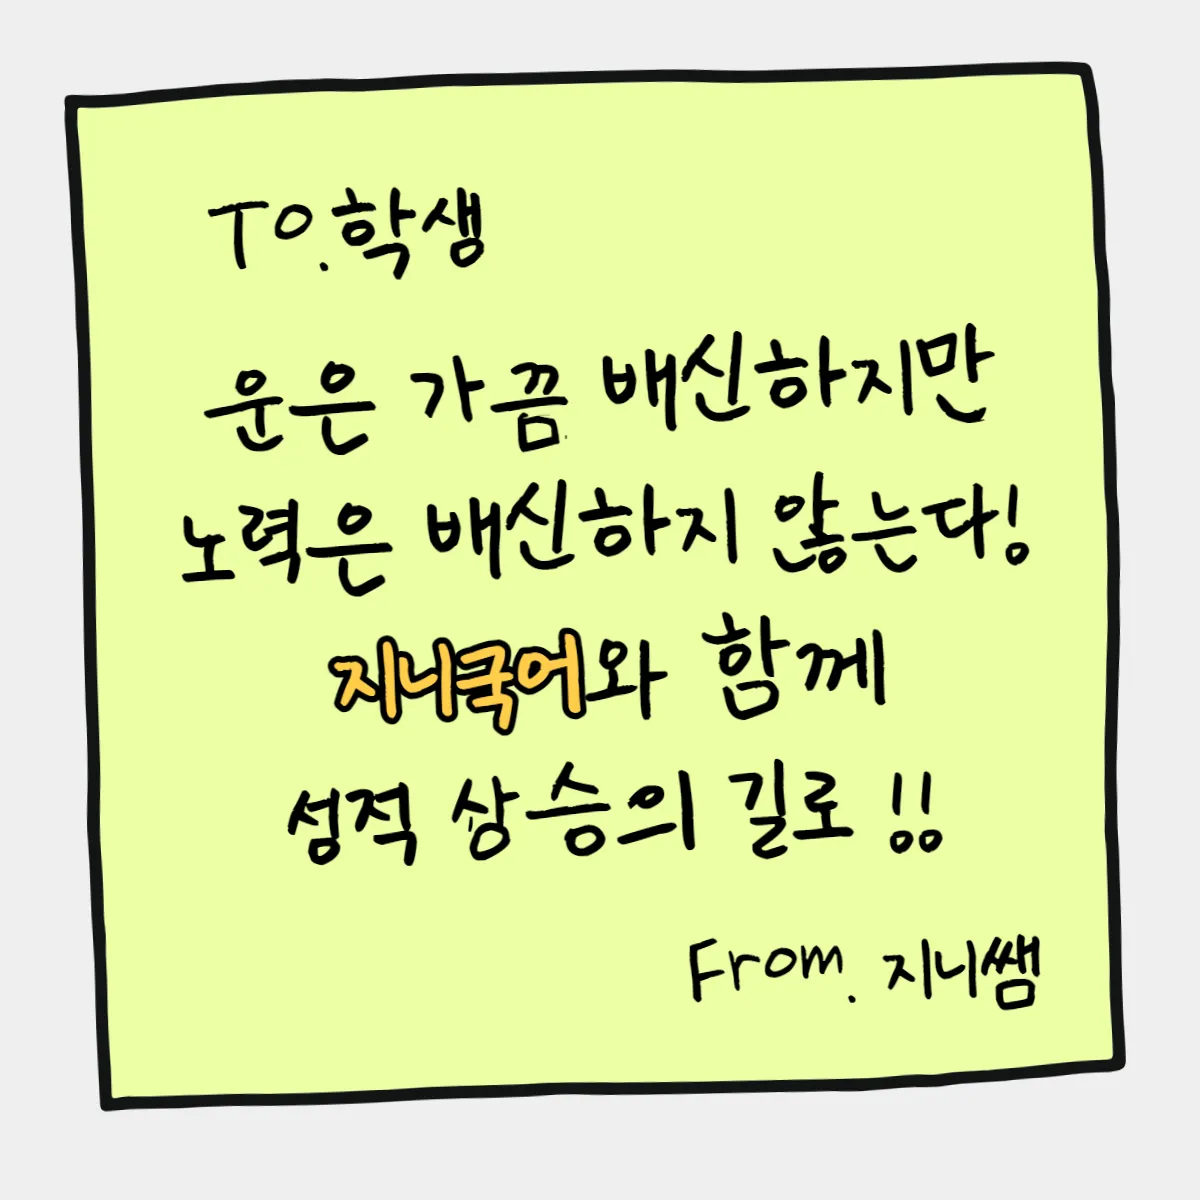 TO.학생
운은 가끔 배신하지만
노력은 배신하지 않는다!
지니국어와 함께
성적 상승의 길로 !!
From. 지니쌤